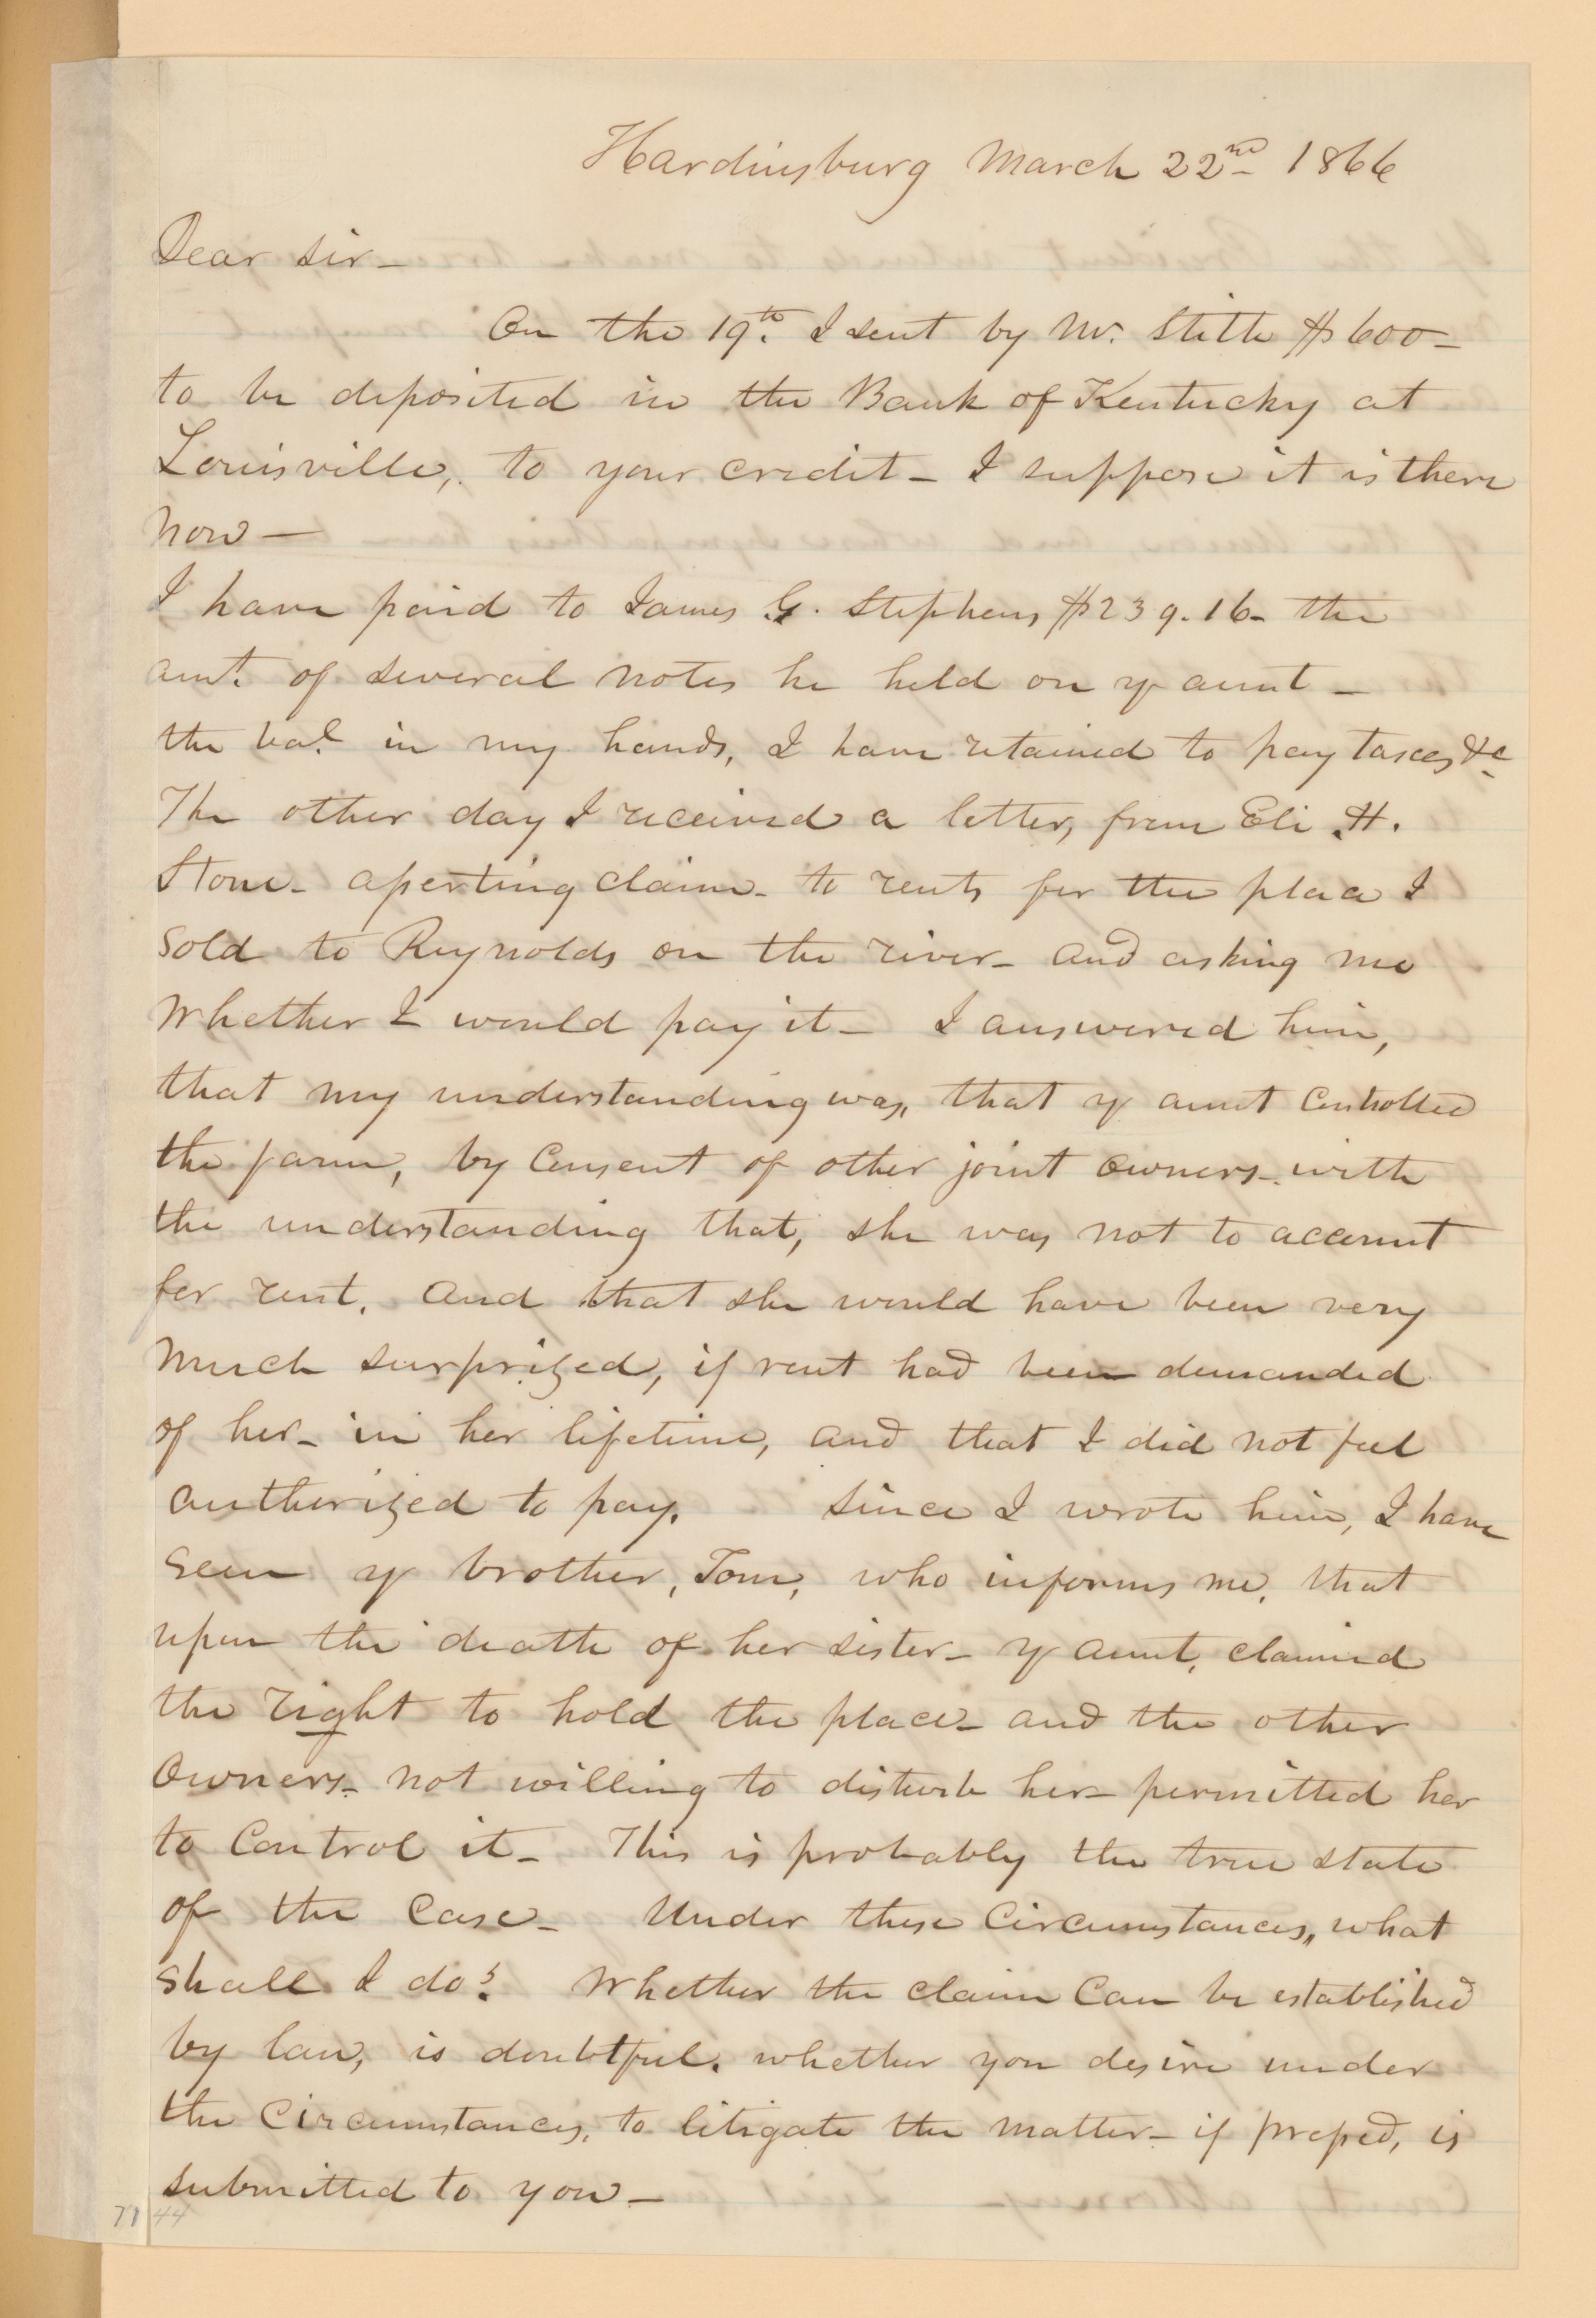 Hardinsburg March 22nd 1866
Dear Sir -
On the 19th. I sent by Mr. Stith $600 -
to be deposited in the Bank of Kentucky at
Louisville, to your credit - I suppose it is there
now -
I have paid to James G. Stephens $239.16 - the
amt. of several notes he held on yr aunt -
the bal in my hands, I have retained to pay taxes &c
The other day I received a letter, from Eli H.
Stone - asserting claim - to rents for the place I
sold to Reynolds on the river - and asking me
Whether I would pay it - I answered him,
that my understanding was, that yr aunt controlled
the farm, by consent of other joint owners - with
the understanding that, she was not to account
for rent. and that she would have been very
much surprized, if rent had been demanded
of her - in her lifetime, and that I did not feel
authorized to pay. Since I wrote him, I have
seen yr brother, Tom, who informs me, that
upon the death of her sister - yr aunt, claimed
the right to hold the place - and the other
owners - not willing to disturb her - permitted her
to Control it - This is probably the true state
of the Case - Under these Circumstances, what
shall I do? Whether the claim Can be established
by law, is doubtful. whether you desire under
the Circumstances, to litigate the matter - if pressed, is
submitted to you -
71 44